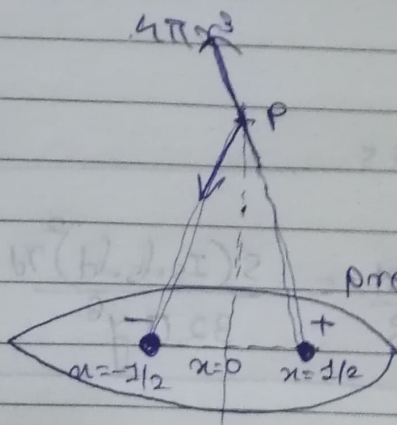 4πr³
P
pr
- +
x=-1/2 x=0 x=1/2